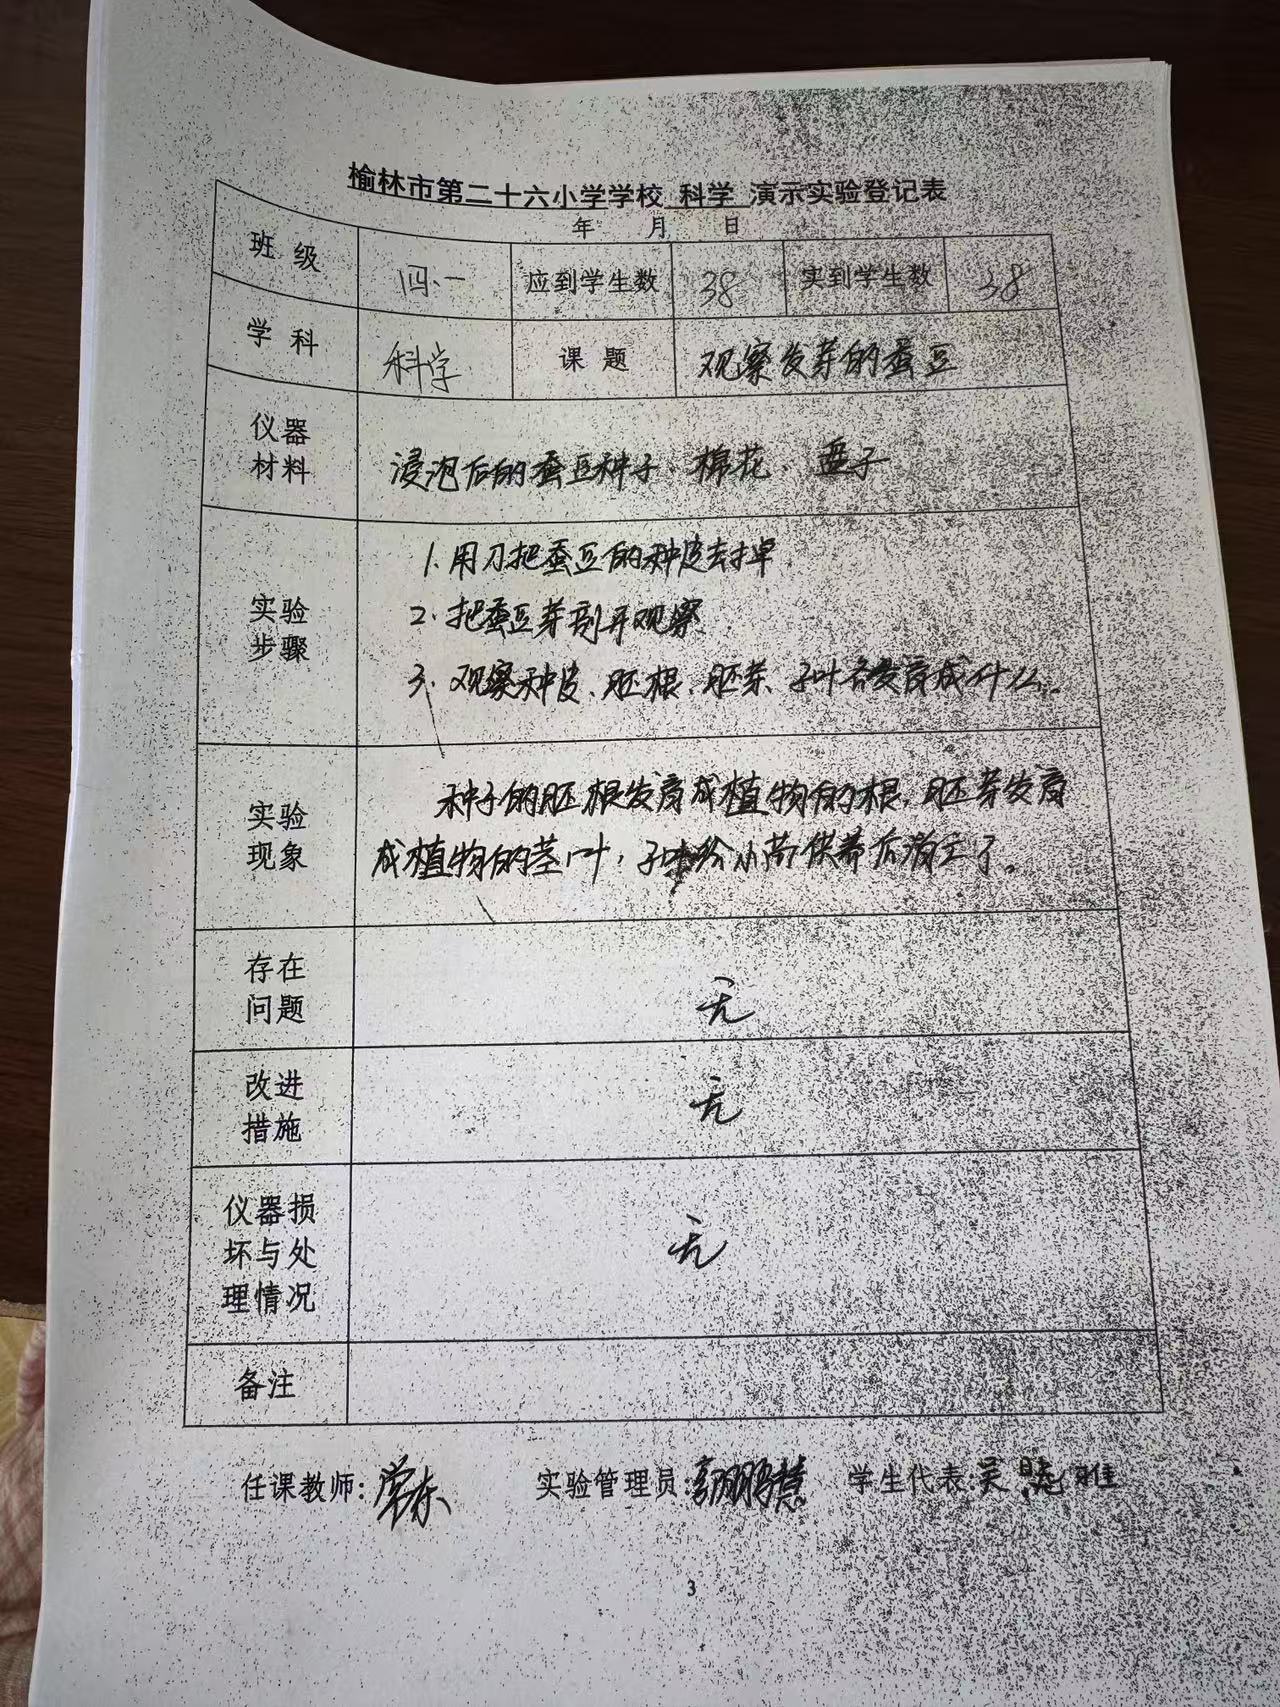 榆林市第二十六小学学校 科学 演示实验登记表
年 月 日
班 级 四.一 应到学生数 38 实到学生数 38
学 科 科学 课 题 观察发芽的蚕豆
仪器
材料
浸泡后的蚕豆种子、棉花、盘子
实验
步骤
1.用刀把蚕豆的种皮去掉
2.把蚕豆芽剖开观察
3.观察种皮、胚根、胚芽、子叶各发育成什么。
实验
现象
种子的胚根发育成植物的根,胚芽发育
成植物的茎叶,子叶给小苗供养后消亡了。
存在
问题
无
改进
措施
无
仪器损
坏与处
理情况
无
备注
任课教师: 实验管理员: 学生代表:吴
3